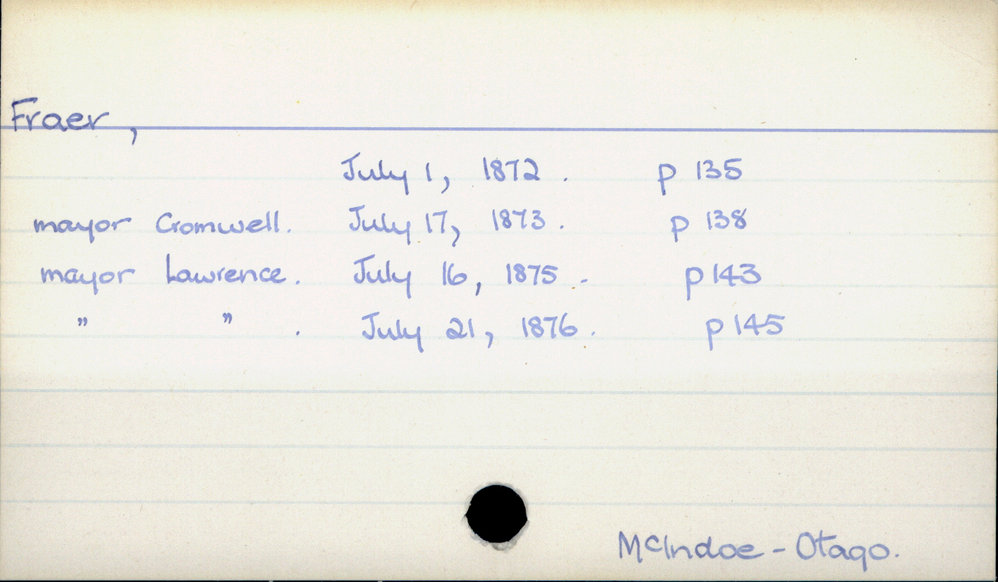 Fraer,
July 1, 1872. p 135
mayor Cromwell. July 17, 1873. p 138
mayor Lawrence. July 16, 1875. p 143
" " . July 21, 1876. p 145
McIndoe - Otago.